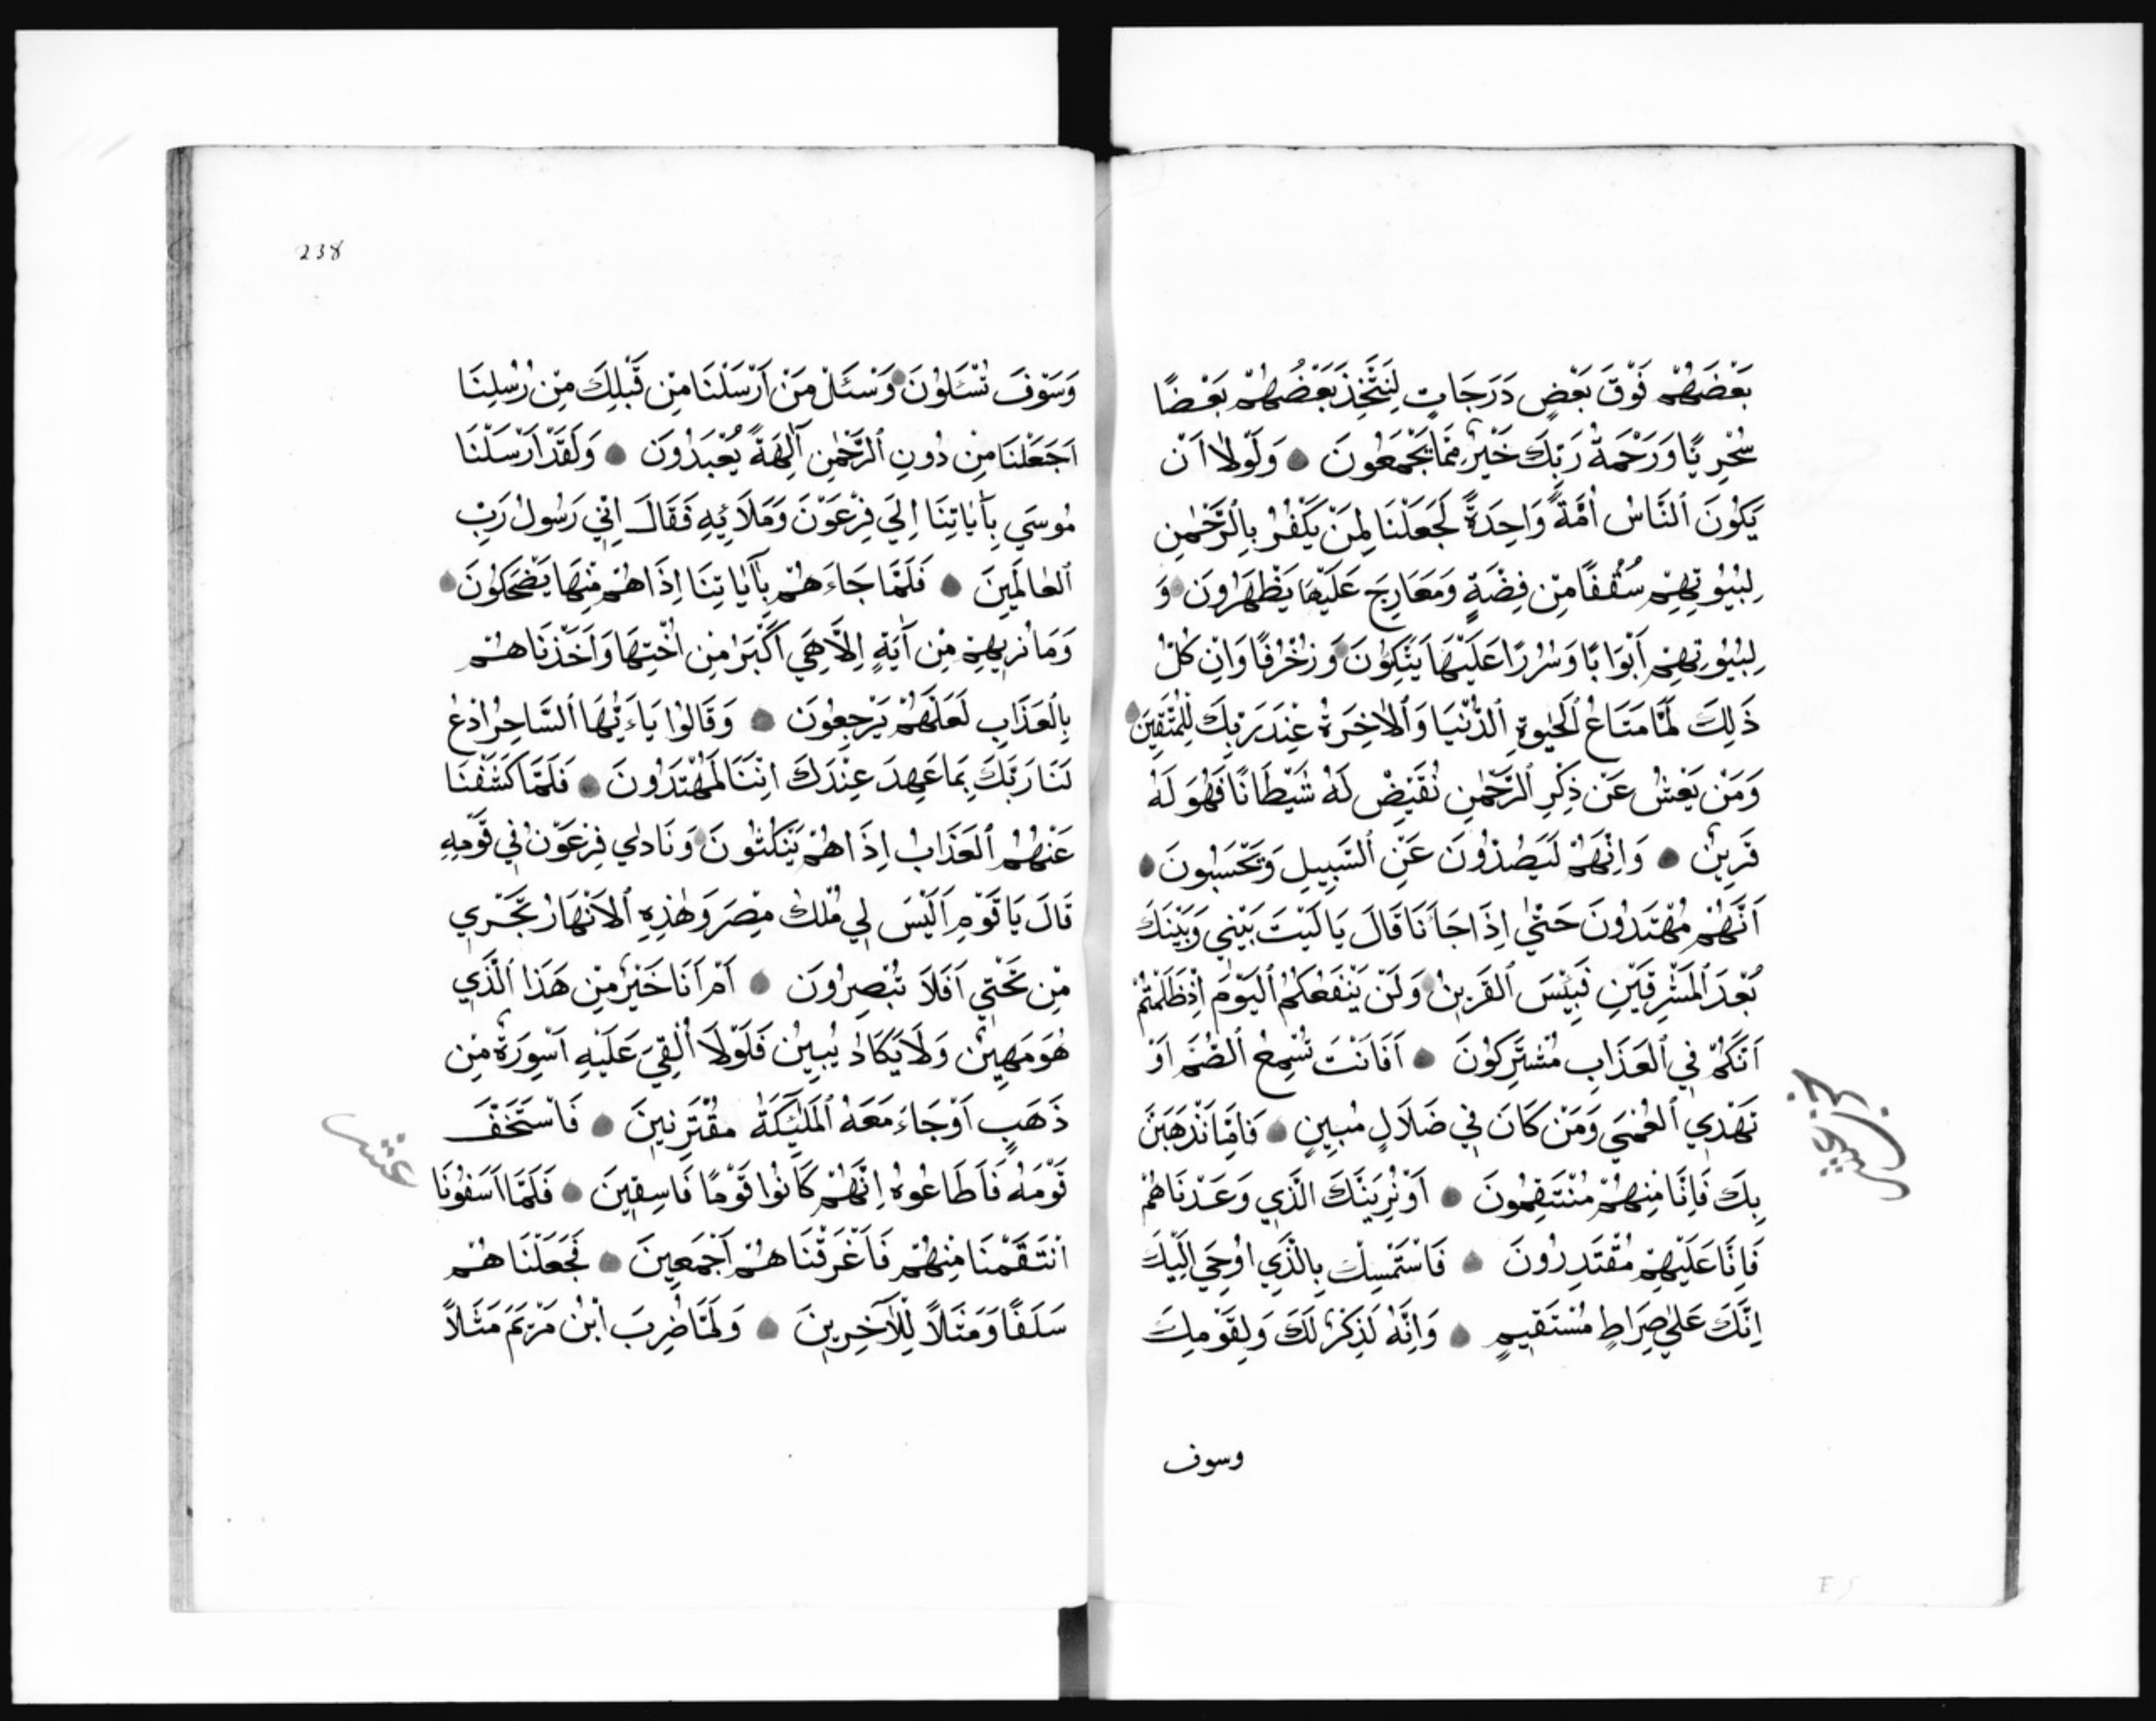 بَعْضَهُمْ فَوْقَ بَعْضٍ دَرَجَاتٍ لِيَتَّخِذَ بَعْضُهُمْ بَعْضًا
سُخْرِيًّا وَرَحْمَةُ رَبِّكَ خَيْرٌ مِمَّا يَجْمَعُونَ وَلَوْلَا اَنْ
يَكُونَ النَّاسُ اُمَّةً وَاحِدَةً لَجَعَلْنَا لِمَنْ يَكْفُرُ بِالرَّحْمٰنِ
لِبُيُوتِهِمْ سُقُفًا مِنْ فِضَّةٍ وَمَعَارِجَ عَلَيْهَا يَظْهَرُونَ وَ
لِبُيُوتِهِمْ اَبْوَابًا وَسُرُرًا عَلَيْهَا يَتَّكِؤُنَ وَزُخْرُفًا وَاِنْ كُلُّ
ذَلِكَ لَمَّا مَتَاعُ الْحَيٰوةِ الدُّنْيَا وَالْاٰخِرَةُ عِنْدَ رَبِّكَ لِلْمُتَّقِينَ
وَمَنْ يَعْشُ عَنْ ذِكْرِ الرَّحْمٰنِ نُقَيِّضْ لَهُ شَيْطَانًا فَهُوَ لَهُ
قَرِينٌ وَاِنَّهُمْ لَيَصُدُّونَ عَنِ السَّبِيلِ وَيَحْسَبُونَ
اَنَّهُمْ مُهْتَدُونَ حَتّٰي اِذَا جَاۤءَنَا قَالَ يَا لَيْتَ بَيْنِي وَبَيْنَكَ
بُعْدَ الْمَشْرِقَيْنِ فَبِئْسَ الْقَرِينُ وَلَنْ يَنْفَعَكُمُ الْيَوْمَ اِذْ ظَلَمْتُمْ
اَنَّكُمْ فِي الْعَذَابِ مُشْتَرِكُونَ اَفَاَنْتَ تُسْمِعُ الصُّمَّ اَوْ
تَهْدِي الْعُمْيَ وَمَنْ كَانَ فِي ضَلَالٍ مُبِينٍ فَاِمَّا نَذْهَبَنَّ
بِكَ فَاِنَّا مِنْهُمْ مُنْتَقِمُونَ اَوْ نُرِيَنَّكَ الَّذِي وَعَدْنَاهُمْ
فَاِنَّا عَلَيْهِمْ مُقْتَدِرُونَ فَاسْتَمْسِكْ بِالَّذِي اُوحِيَ اِلَيْكَ
اِنَّكَ عَلٰي صِرَاطٍ مُسْتَقِيمٍ وَاِنَّهُ لَذِكْرٌ لَكَ وَلِقَوْمِكَ
وسوف
238
وَسَوْفَ تُسْـَٔلُونَ وَسْـَٔلْ مَنْ اَرْسَلْنَا مِنْ قَبْلِكَ مِنْ رُسُلِنَا
اَجَعَلْنَا مِنْ دُونِ الرَّحْمٰنِ اٰلِهَةً يُعْبَدُونَ وَلَقَدْ اَرْسَلْنَا
مُوسَي بِاٰيَاتِنَا اِلَي فِرْعَوْنَ وَمَلَائِهِ فَقَالَ اِنِّي رَسُولُ رَبِّ
الْعَالَمِينَ فَلَمَّا جَاءَهُمْ بِاٰيَاتِنَا اِذَا هُمْ مِنْهَا يَضْحَكُونَ
وَمَا نُرِيهِمْ مِنْ اٰيَةٍ اِلَّا هِيَ اَكْبَرُ مِنْ اُخْتِهَا وَاَخَذْنَاهُمْ
بِالْعَذَابِ لَعَلَّهُمْ يَرْجِعُونَ وَقَالُوا يَاءَيُّهَا السَّاحِرُ ادْعُ
لَنَا رَبَّكَ بِمَا عَهِدَ عِنْدَكَ اِنَّنَا لَمُهْتَدُونَ فَلَمَّا كَشَفْنَا
عَنْهُمُ الْعَذَابَ اِذَا هُمْ يَنْكُثُونَ وَنَادٰي فِرْعَوْنُ فِي قَوْمِهِ
قَالَ يَا قَوْمِ اَلَيْسَ لِي مُلْكُ مِصْرَ وَهٰذِهِ الْاَنْهَارُ تَجْرِي
مِنْ تَحْتِي اَفَلَا تُبْصِرُونَ اَمْ اَنَا خَيْرٌ مِنْ هَذَا الَّذِي
هُوَ مَهِينٌ وَلَا يَكَادُ يُبِينُ فَلَوْلَا اُلْقِيَ عَلَيْهِ اَسْوِرَةٌ مِنْ
ذَهَبٍ اَوْ جَاءَ مَعَهُ الْمَلٰئِكَةُ مُقْتَرِنِينَ فَاسْتَخَفَّ
عشر
قَوْمَهُ فَاَطَاعُوهُ اِنَّهُمْ كَانُوا قَوْمًا فَاسِقِينَ فَلَمَّا اٰسَفُونَا
انْتَقَمْنَا مِنْهُمْ فَاَغْرَقْنَاهُمْ اَجْمَعِينَ فَجَعَلْنَاهُمْ
سَلَفًا وَمَثَلًا لِلْاٰخِرِينَ وَلَمَّا ضُرِبَ ابْنُ مَرْيَمَ مَثَلًا